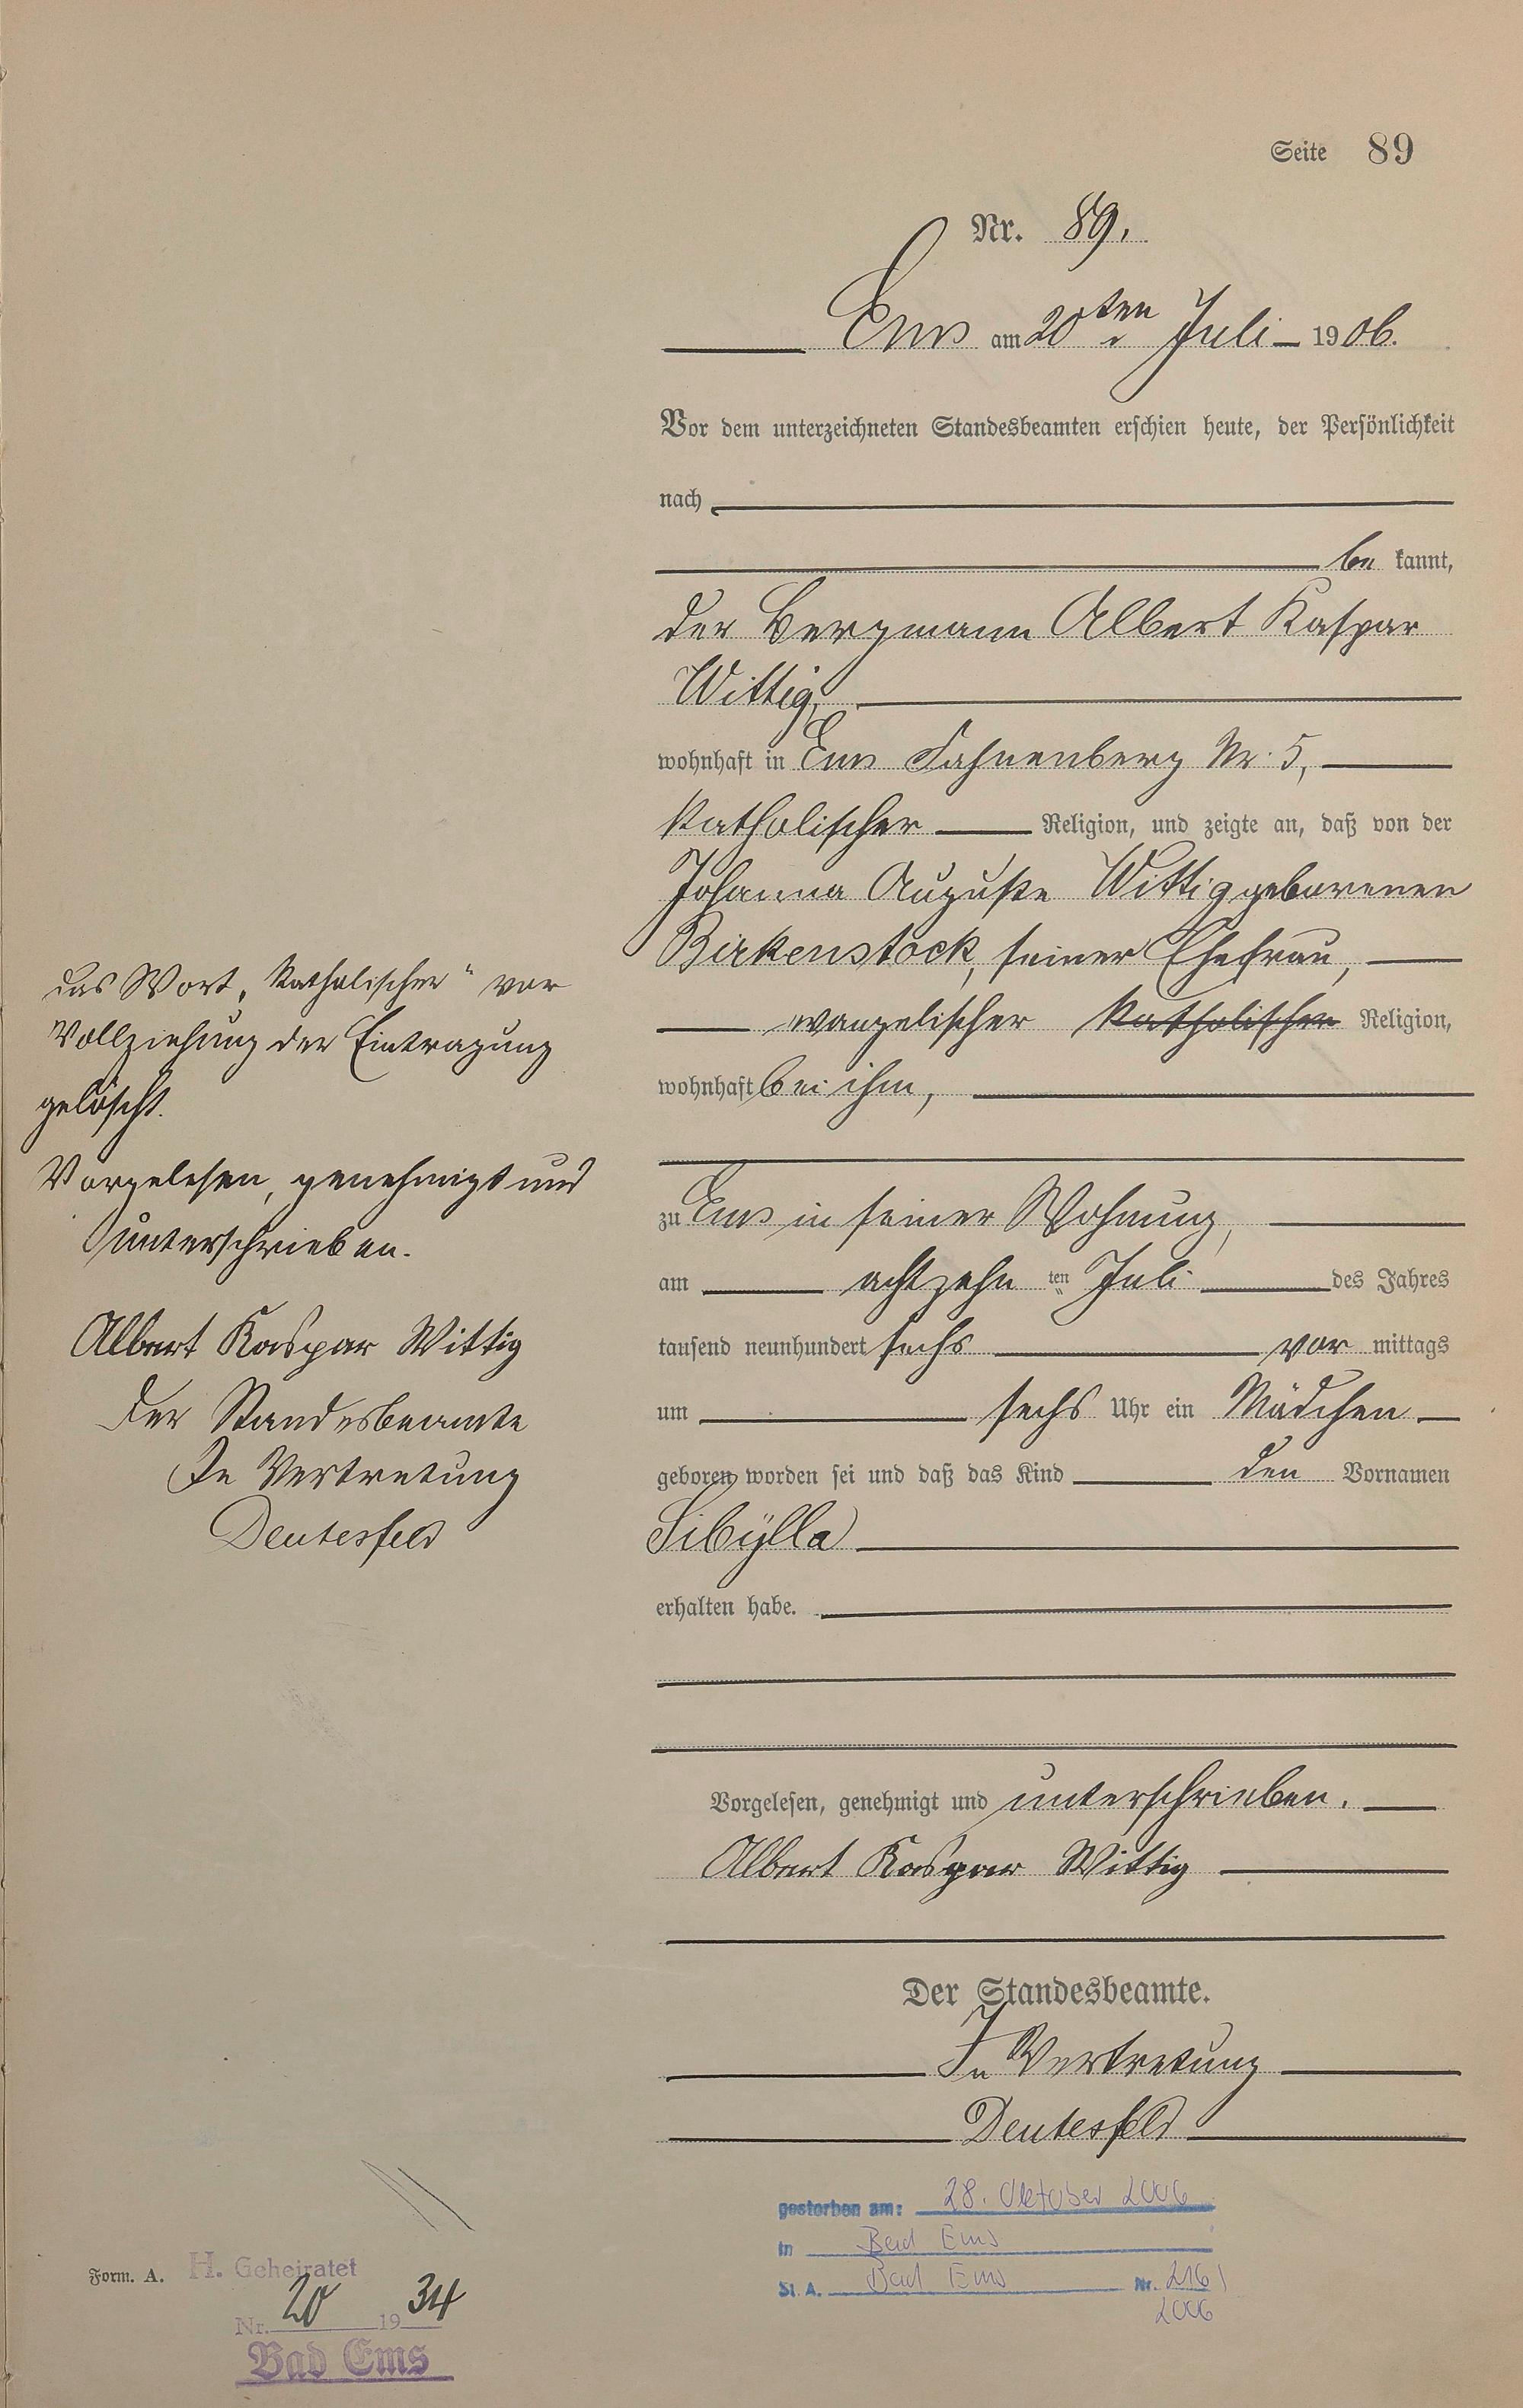 Seite 89
Nr. 89.
Ems am 20ten Juli 1906.
Vor dem unterzeichneten Standesbeamten erschien heute, der Persönlichkeit
nach
be kannt,
der Bergmann Albert Kaspar
Wittig,
wohnhaft in Ems Fahnenberg Nr. 5,
katholischer Religion, und zeigte an, daß von der
Johanna Auguste Wittig geborenen
Birkenstock, seiner Ehefrau,
evangelischer katholischer Religion,
wohnhaft bei ihm,
zu Ems in seiner Wohnung,
am achtzehn ten Juli des Jahres
tausend neunhundert sechs vor mittags
um sechs Uhr ein Mädchen
geboren worden sei und daß das Kind den Vornamen
Sibÿlla
erhalten habe.
Vorgelesen, genehmigt und unterschrieben.
Albert Kaspar Wittig
Der Standesbeamte.
In Vertretung
Deutesfeld
das Wort „katholischer“ vor
Vollziehung der Eintragung
gelöscht.
Vorgelesen, genehmigt und
unterschrieben.
Albert Kaspar Wittig
Der Standesbeamte
In Vertretung
Deutesfeld
gestorben am: 28. Oktober 2006
in Bad Ems
St. A. Bad Ems Nr. 216/
2006
Form. A.
H. Geheiratet
Nr. 20 1934
Bad Ems